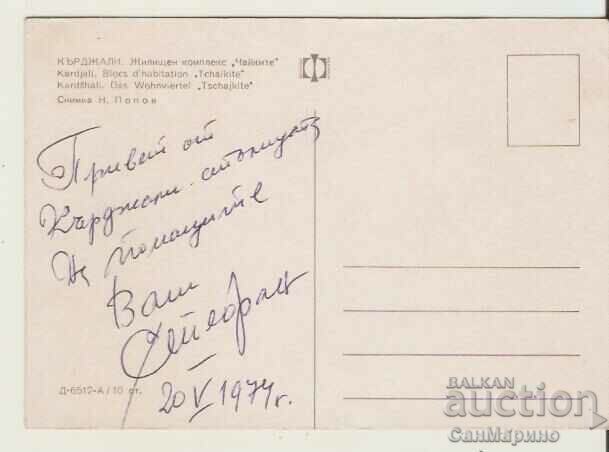 КЪРДЖАЛИ. Жилищен комплекс „Чайките"
Kardjali. Blocs d'habitation „Tchaikite"
Kardshali. Das Wohnviertel „Tschajkite"
Снимка Н. Попов
Привет от
Кърджали столицата
На помаците
Ваш
20 V 1974 г.
Д-6512-А / 10 ст.
BALKAN
auction
СанМарино